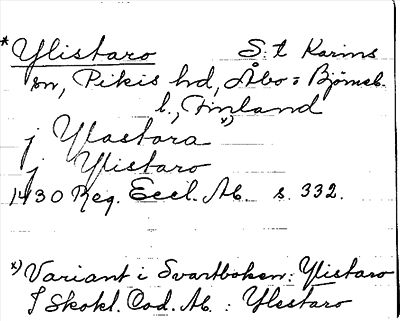 * Ylistaro S:t Karins
sn, Pikis hd, Åbo-Björneb.
l., Finland
j Ylastara x)
j Ylistaro
1430 Reg. Eccl. Ab. s. 332.
x) Variant i Svartboken: Ylistaro
I Skokl. Cod. Ab.: Ylestaro